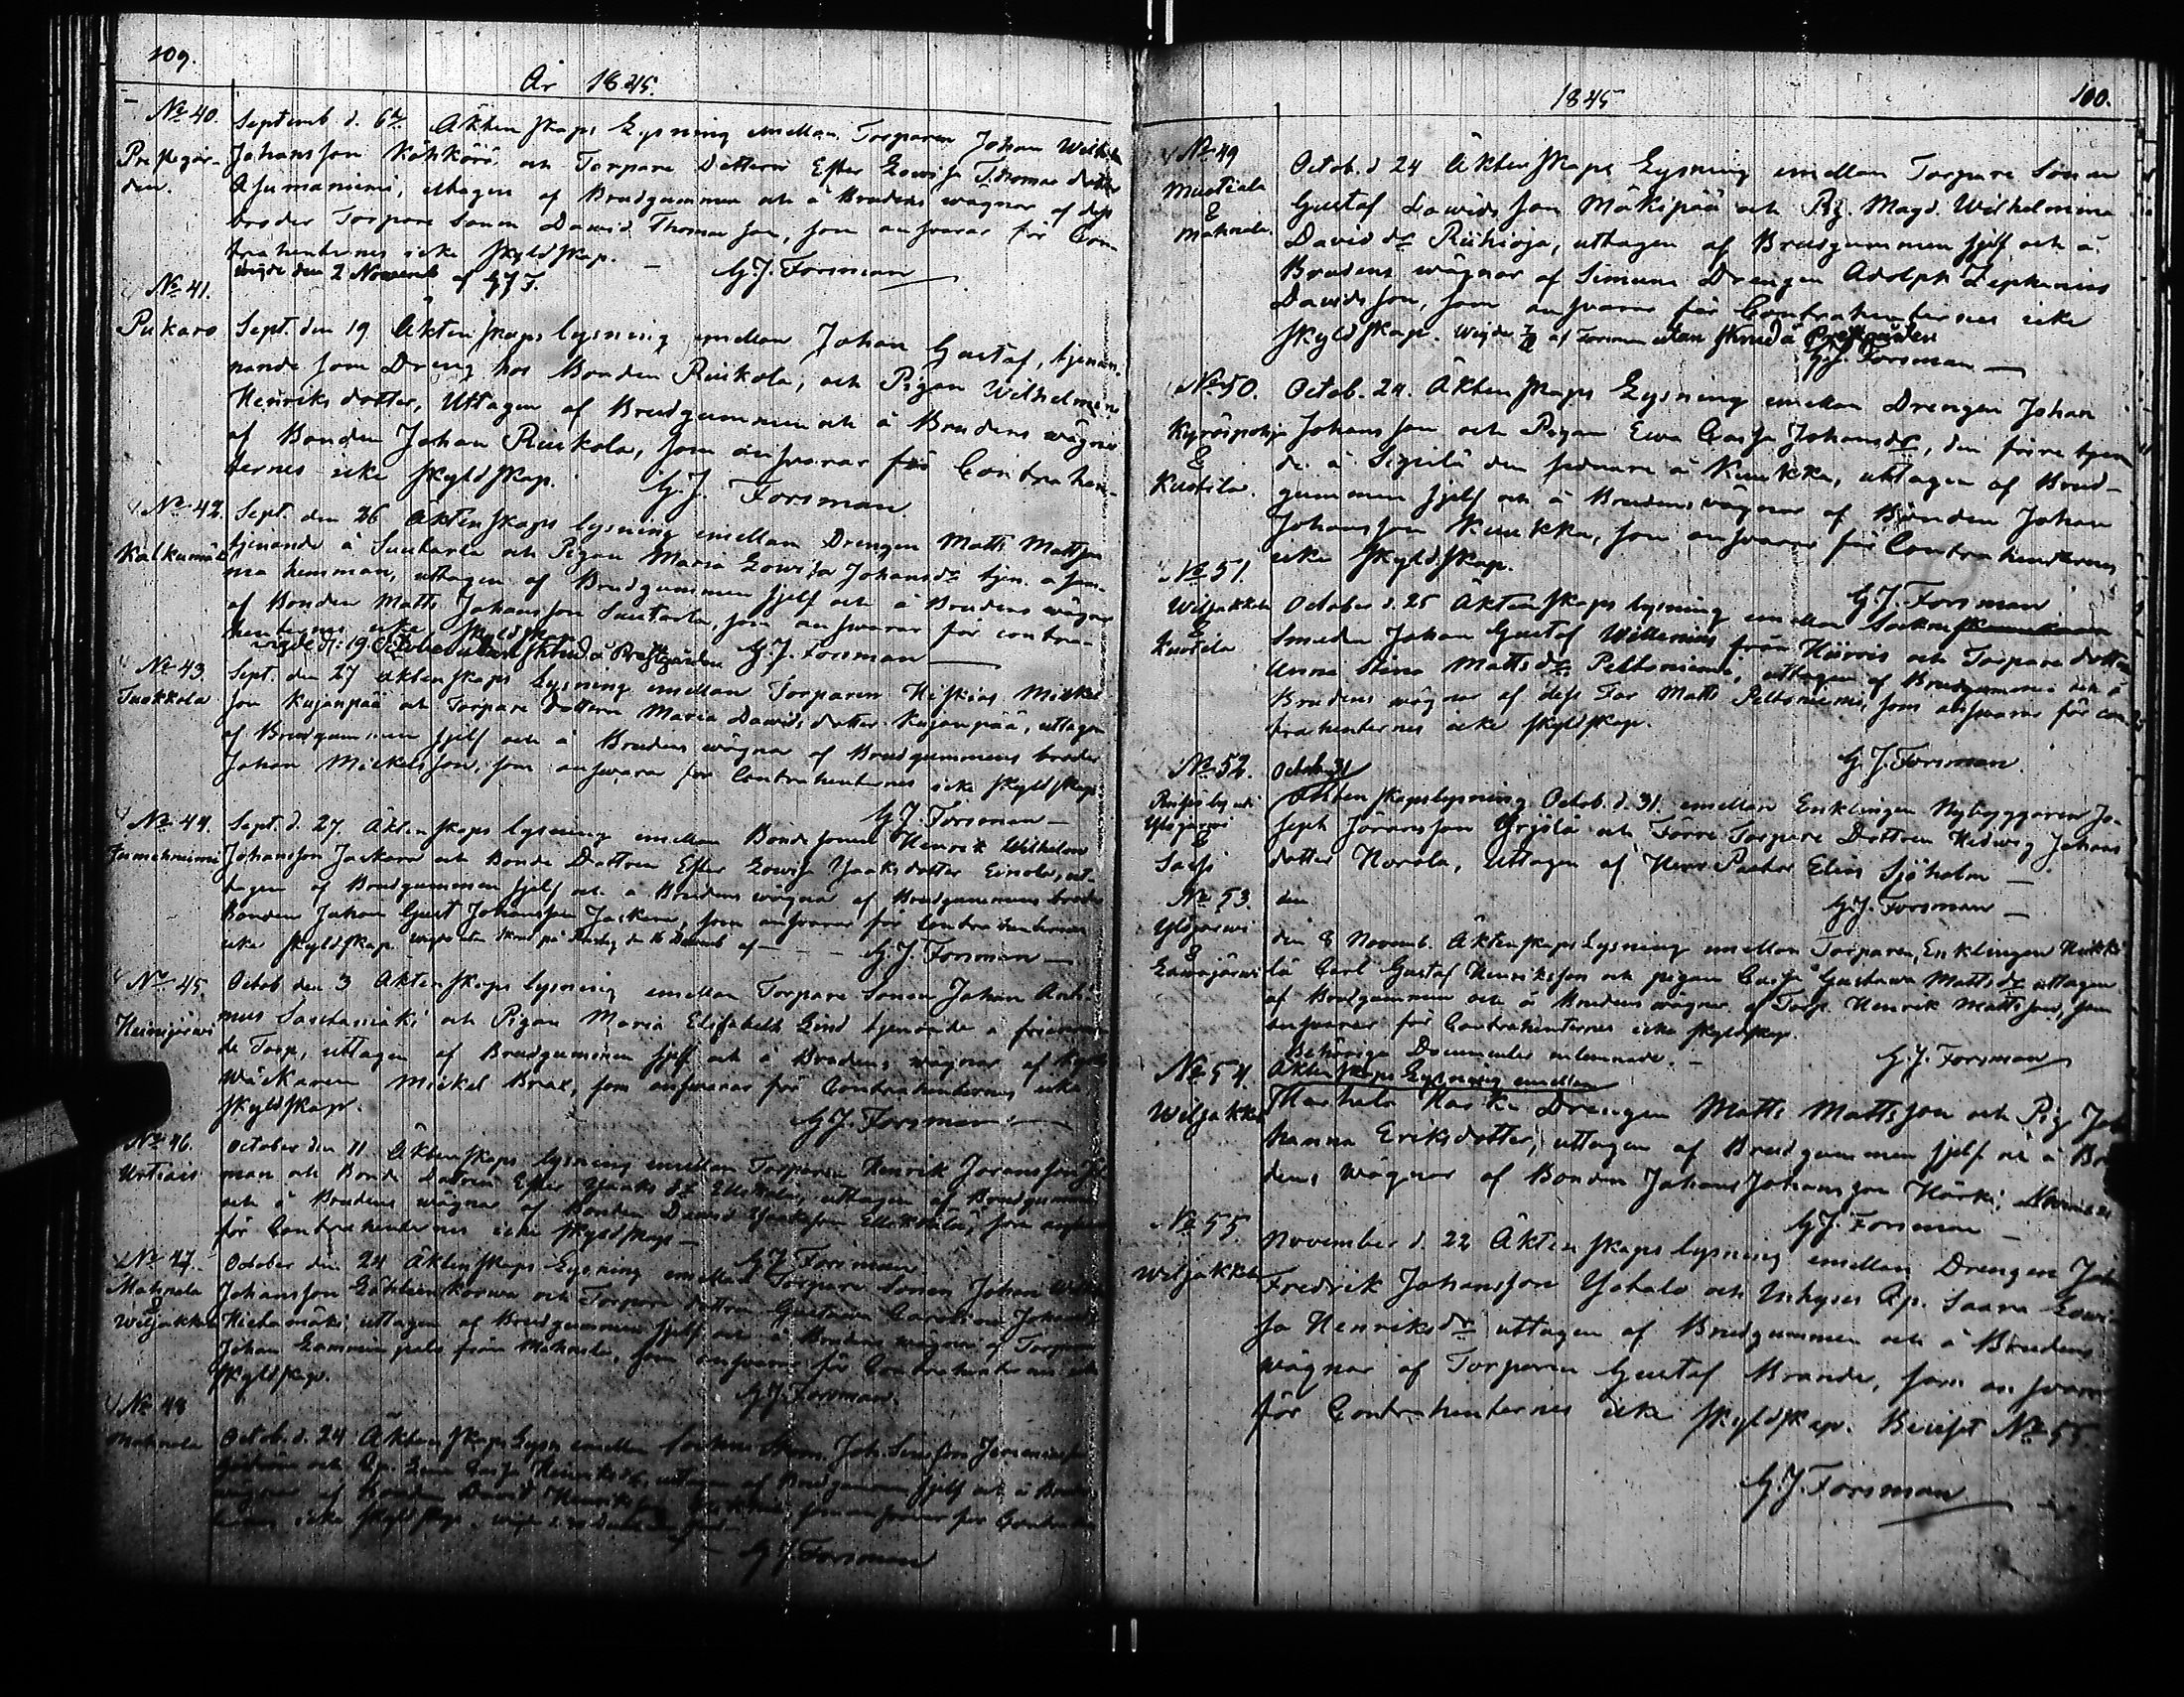 109.
År 1845.
No 40. Septemb d. 6te Äktenskaps Lysning emellan Torparen Johan Wilhelm
Prestgår- Johansson Köhkörö och Torpare Dottren Esther Lowisa Thomas dotter
den. Asumaniemi, uttagen af Brudgummen och å Brudens wägnar af dess
broder Torpare Sonen Dawid Thomasson, som answarar för Con-
trahenternes icke skyldskap. – G.J. Forsman
wigde den 2 Novemb af GJF.
No 41.
Pukaro Sept. den 19 Äktenskaps lysning emellan Johan Gustaf, tjenan-
nande som Dreng hos Bonden Riukola, och Pigan Wilhelmina
Henriks dotter, Uttagen af Brudgummen och å Brudens wägnar
af Bonden Johan Riukola, som answarar för Contrahen-
ternes icke skyldskap. G.J. Forsman
No 42. Sept. den 26 Äktenskaps lysning emellan Drengen Matts Mattsson
Kalkunmäki tjenande å Suutarla och Pigan Maria Lowisa Johansdr tjen. å sam-
ma hemman, uttagen af Brudgummen sjelf och å Brudens wägnar
af Bonden Matts Johansson Suutarla, som answarar för contra-
henternes icke skyldsk.
wigde d: 19 October utan skrud å Prestgården G.J. Forsman
No 43. Sept. den 27 äktenskaps Lysning emellan Torparen Hiskias Mickel
Tuokkola son Kujanpää och Torpare dottren Maria Dawids dotter Kujanpää, uttagen
af Brudgummen sjelf och å Brudens wägnar af Brudgummens broder
Johan Mickelsson, som answarar för Contrahenternes icke skyldskap.
G.J. Forsman –
No 44. Sept. d. 27. Äktenskaps lysning emellan Bondesonen Henrik Wilhelm
Johansson Jaskara och Bonde Dottren Esther Lowisa Isaksdotter Einola, ut-
tagen af Brudgummen sjelf och å Brudens wägnar af Brudgummens broder
Bonden Johan Gust Johansson Jaskara, som answarar för Contrahenternes
icke skyldskap. wigde utan skrud på den 16 Decemb af – G.J. Forsman –
No 45. Octob den 3 Äktenskaps lysning emellan Torpare Sonen Johan Anti-
Heinijärwi mus och Pigan Maria Elisabeth Lind tjenande å
de Torp, uttagen af Brudgummen sjelf och å Brudens wägnar af
Wäckaren Mickel Brax, som answarar för Contrahenternes icke
skyldskap. G.J. Forsman –
No 46. October den 11. Äktenskaps lysning emellan Torparen Henrik Joransson
Urtiais man och Bonde Dottren Esther Isaks dr uttagen af Brudgummen
och å Brudens wägnar af Bonden Dawid Isaksson som answarar
för Contrahenternes icke skyldskap –
G.J. Forsman
No 47. October den 24 Äktenskaps Lysning emellan Torpare Sonen Johan
Mahnala Johansson Lähteenkorwa och Torpare dottren Gustawa Carolina Johansdr
& Wiljakkala Hietamäki, uttagen af Brudgummen sjelf och å Brudens wägnar af Torparen
Johan från Mahnala, som answarar för Contrahenternes icke
skyldskap.
G.J. Forsman
No 48
Mahnala Octob. d. 24 Äktenskaps Lysn emellan Sockne Skom. Joh.
och Qp. Caisa Henriksdr, uttagen af Brudgummen sjelf och å Brudens
wägnar af Bonden Dawid Henriksson som answarar för Contrahen
ternes icke skyldskap.
G.J. Forsman
1845
100.
No 49 Octob. d 24 Äktenskaps Lysning emellan Torpare Sonen
Mustiala Gustaf Dawidsson Mäkipää och Pig. Magd. Wilhelmina
& Mahnala. David dr Riihioja, uttagen af Brudgummen sjelf och å
Brudens wägnar af Simuna Drengen Adolph Zephanias
Davidsson, som answarar för Contrahenternes icke
skyldskap. Wigde af Forsman utan skrud å Prestgården
G.J. Forsman –
No 50. Octob. 24. Äktenskaps Lysning emellan Drengen Johan
Kyröspohja Johansson och Pigan Ewa Caisa Johansdr, den förre tjenan
& de å den sednare å Kuukka, uttagen af Brud-
Kuotila. gummen sjelf och å Brudens wägnar af Bonden Johan
Johansson Kuukka, som answarar för Contrahenternes
icke skyldskap.
No 51. G.J. Forsman.
Wiljakkala October d. 25 Äktenskaps lysning emellan Sockne
& Smeden Johan Gustaf Willenius från Kierois och Torpare dottren
Kuotila Anna Stina Mattsdr Peltoniemi, uttagen af Brudgummen och å
Brudens wägnar af dess Far Matts Peltoniemi, som answarar för con
trahenternes icke skyldskap.
G.J. Forsman.
No 52. Octob. 31
Äktenskapslysning Octob. d. 31. emellan Enklingen Nybyggaren Jo-
Ylöjärwi seph Joransson Yrjölä och Förre Torpare Dottren Hedwig Johans
& Sasi dotter Howola, Uttagen af Herr Pastor Elias Sjöholm –
No 53. den G.J. Forsman –
Ylöjärwi den 8 Novemb. Äktenskapslysning emellan Torparen, Enklingen Heikki
& Lawajärwi lä Carl Gustaf Henriksson och pigan Caisa Gustawa Mattsdr uttagen
af Brudgummen och å Brudens wägnar af Torp. Henrik Mattsson, som
answarar för Contrahenternes icke skyldskap.
Behöriga Documenter inlemnade. – G.J. Forsman –
No 54. Äktenskaps Lysning emellan
Wiljakkala Drengen Matts Mattsson och Pig Jo
hanna Eriksdotter, uttagen af Brudgummen sjelf och å Bru
dens wägnar af Bonden Johans Johansson Harki,
G.J. Forsman –
No 55. November d. 22 Äktenskaps lysning emellan Drengen Joh
Wiljakkala Fredrik Johansson Ystalo och Inhyses Qp. Saara Lowi-
sa Henriksdr uttagen af Brudgummen och å Brudens
wägnar af Torparen Gustaf Brander, som answarar
för Contrahenternes icke skyldskap. Beviset No 55.
G.J. Forsman